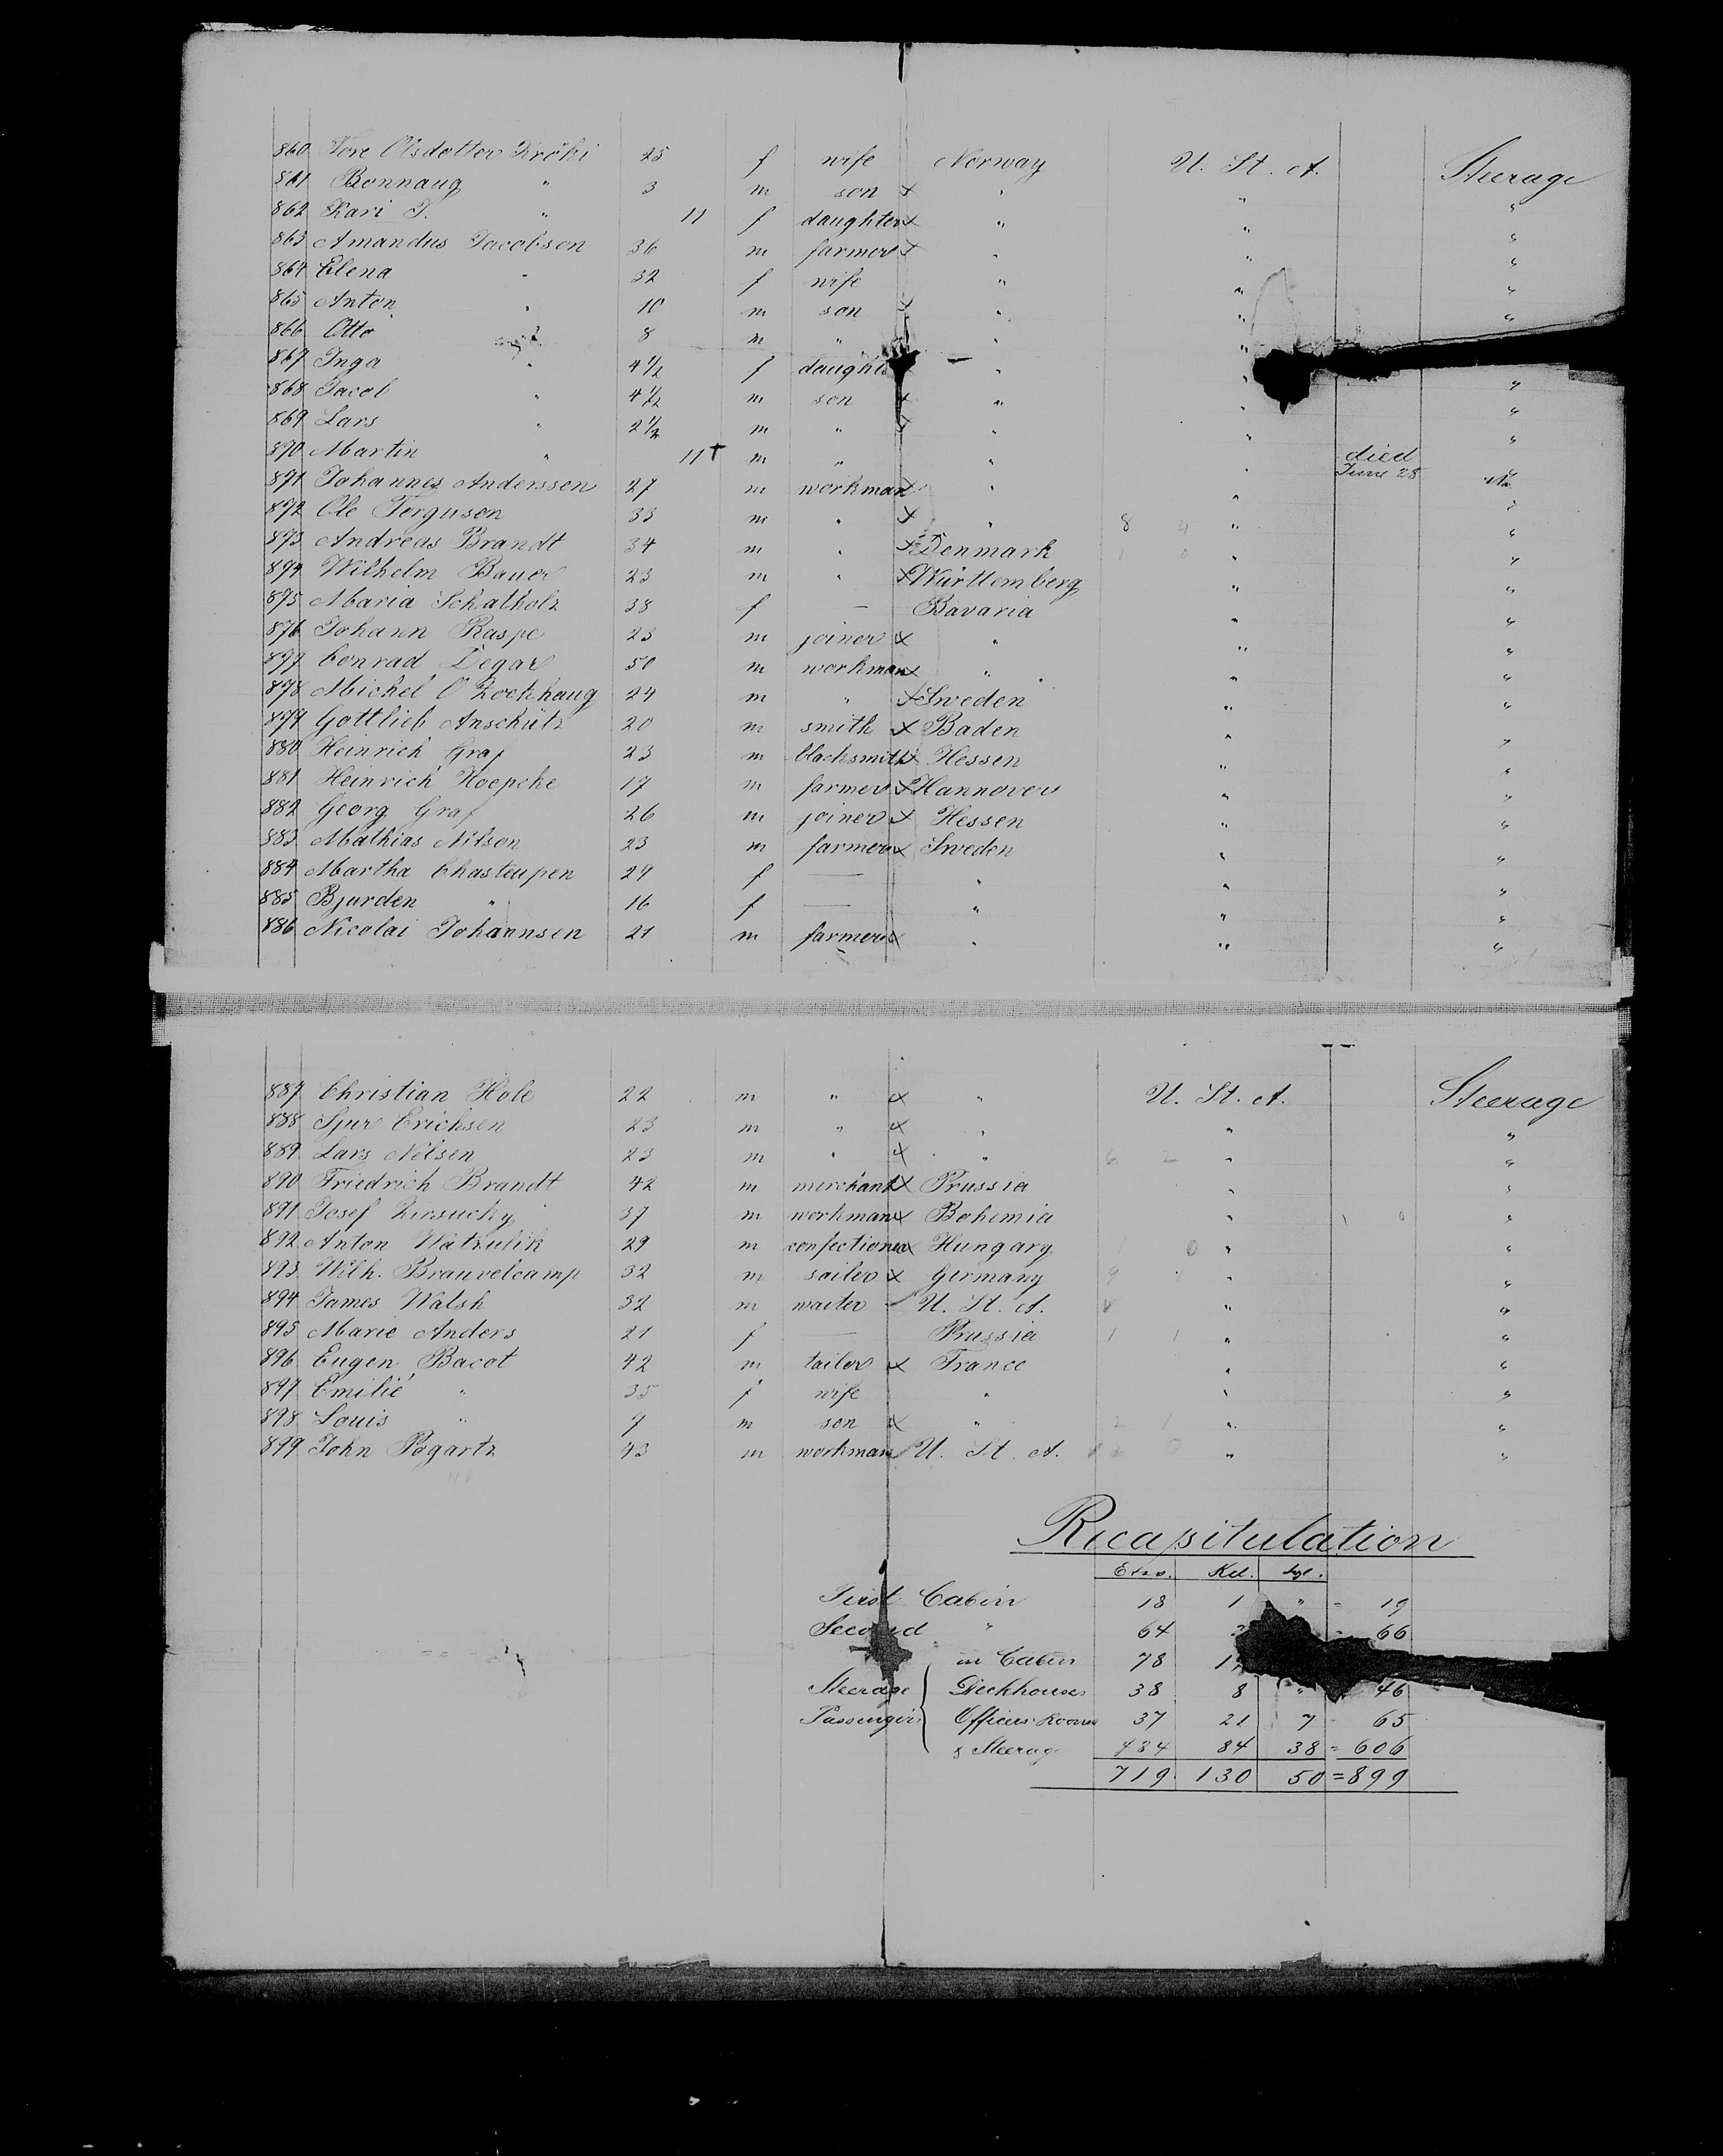 860 Tore Olsdotter Kröki 25 f wife Norway U. St. A. Steerage
861 Bonnaug " 3 m son x " " "
862 Kari T. " 11 f daughter x " " "
863 Amandus Jacobson 36 m farmer x " " "
864 Elena " 32 f wife " " "
865 Anton " 10 m son x " " "
866 Otto 8 m " " "
867 Inga " 4½ f " "
868 Jacob " 4½ m son x " " "
869 Lars " 2½ m " x " " "
870 Martin " 11 † m " " " died June 28 "
871 Johannes Anderssen 27 m workman x " "
872 Ole Ferguson 33 m " x " 8 4 " "
873 Andreas Brandt 34 m " x Denmark " "
874 Wilhelm Bauer 23 m " x Württemberg " "
875 Maria Schatholz 38 f — Bavaria " "
876 Johann Raspe 23 m joiner x " " "
877 Conrad Degar 50 m workman x " " "
878 Michel O 24 m " x Sweden " "
879 Gottlieb Anschütz 20 m smith x Baden " "
880 Heinrich Graf 23 m blacksmith x Hessen " "
881 Heinrich Hoepcke 17 m farmer x Hannover " "
882 Georg Graf 26 m joiner x Hessen " "
883 Mathias Nilson 23 m farmer x Sweden " "
884 Martha Chastenpen 29 f — " " "
885 Bjurden " 16 f — " " "
886 Nicolai Johannsen 21 m farmer x " " "
887 Christian Hole 22 m " x " U. St. A. Steerage
888 Sjur Erichsen 23 m " x " " "
889 Lars Nilsen 23 m " x " 6 2 " "
890 Friedrich Brandt 42 m merchant x Prussia " "
891 Josef 37 m workman x Bohemia " 1 0 "
892 Anton Watzulik 29 m confectioner x Hungary 0 " "
893 Wilh. Brauvelcamp 32 m sailer x Germany " "
894 James Walsh 32 m waiter U. St. A. " "
895 Marie Anders 21 f — Prussia 1 1 " "
896 Eugen Bacot 42 m tailor x France " "
897 Emilie " 35 f wife " " "
898 Louis " 9 m son x " 2 1 " "
899 John Pogartz 43 m workman U. St. A. " "
Recapitulation
First Cabin 18 1 " = 19
Second " 64 = 66
in Cabin 78
Steerage Deckhouses 38 8 " 46
Passengers Officers Rooms 37 21 7 = 65
& Steerage 484 84 38 = 606
719 130 50 = 899